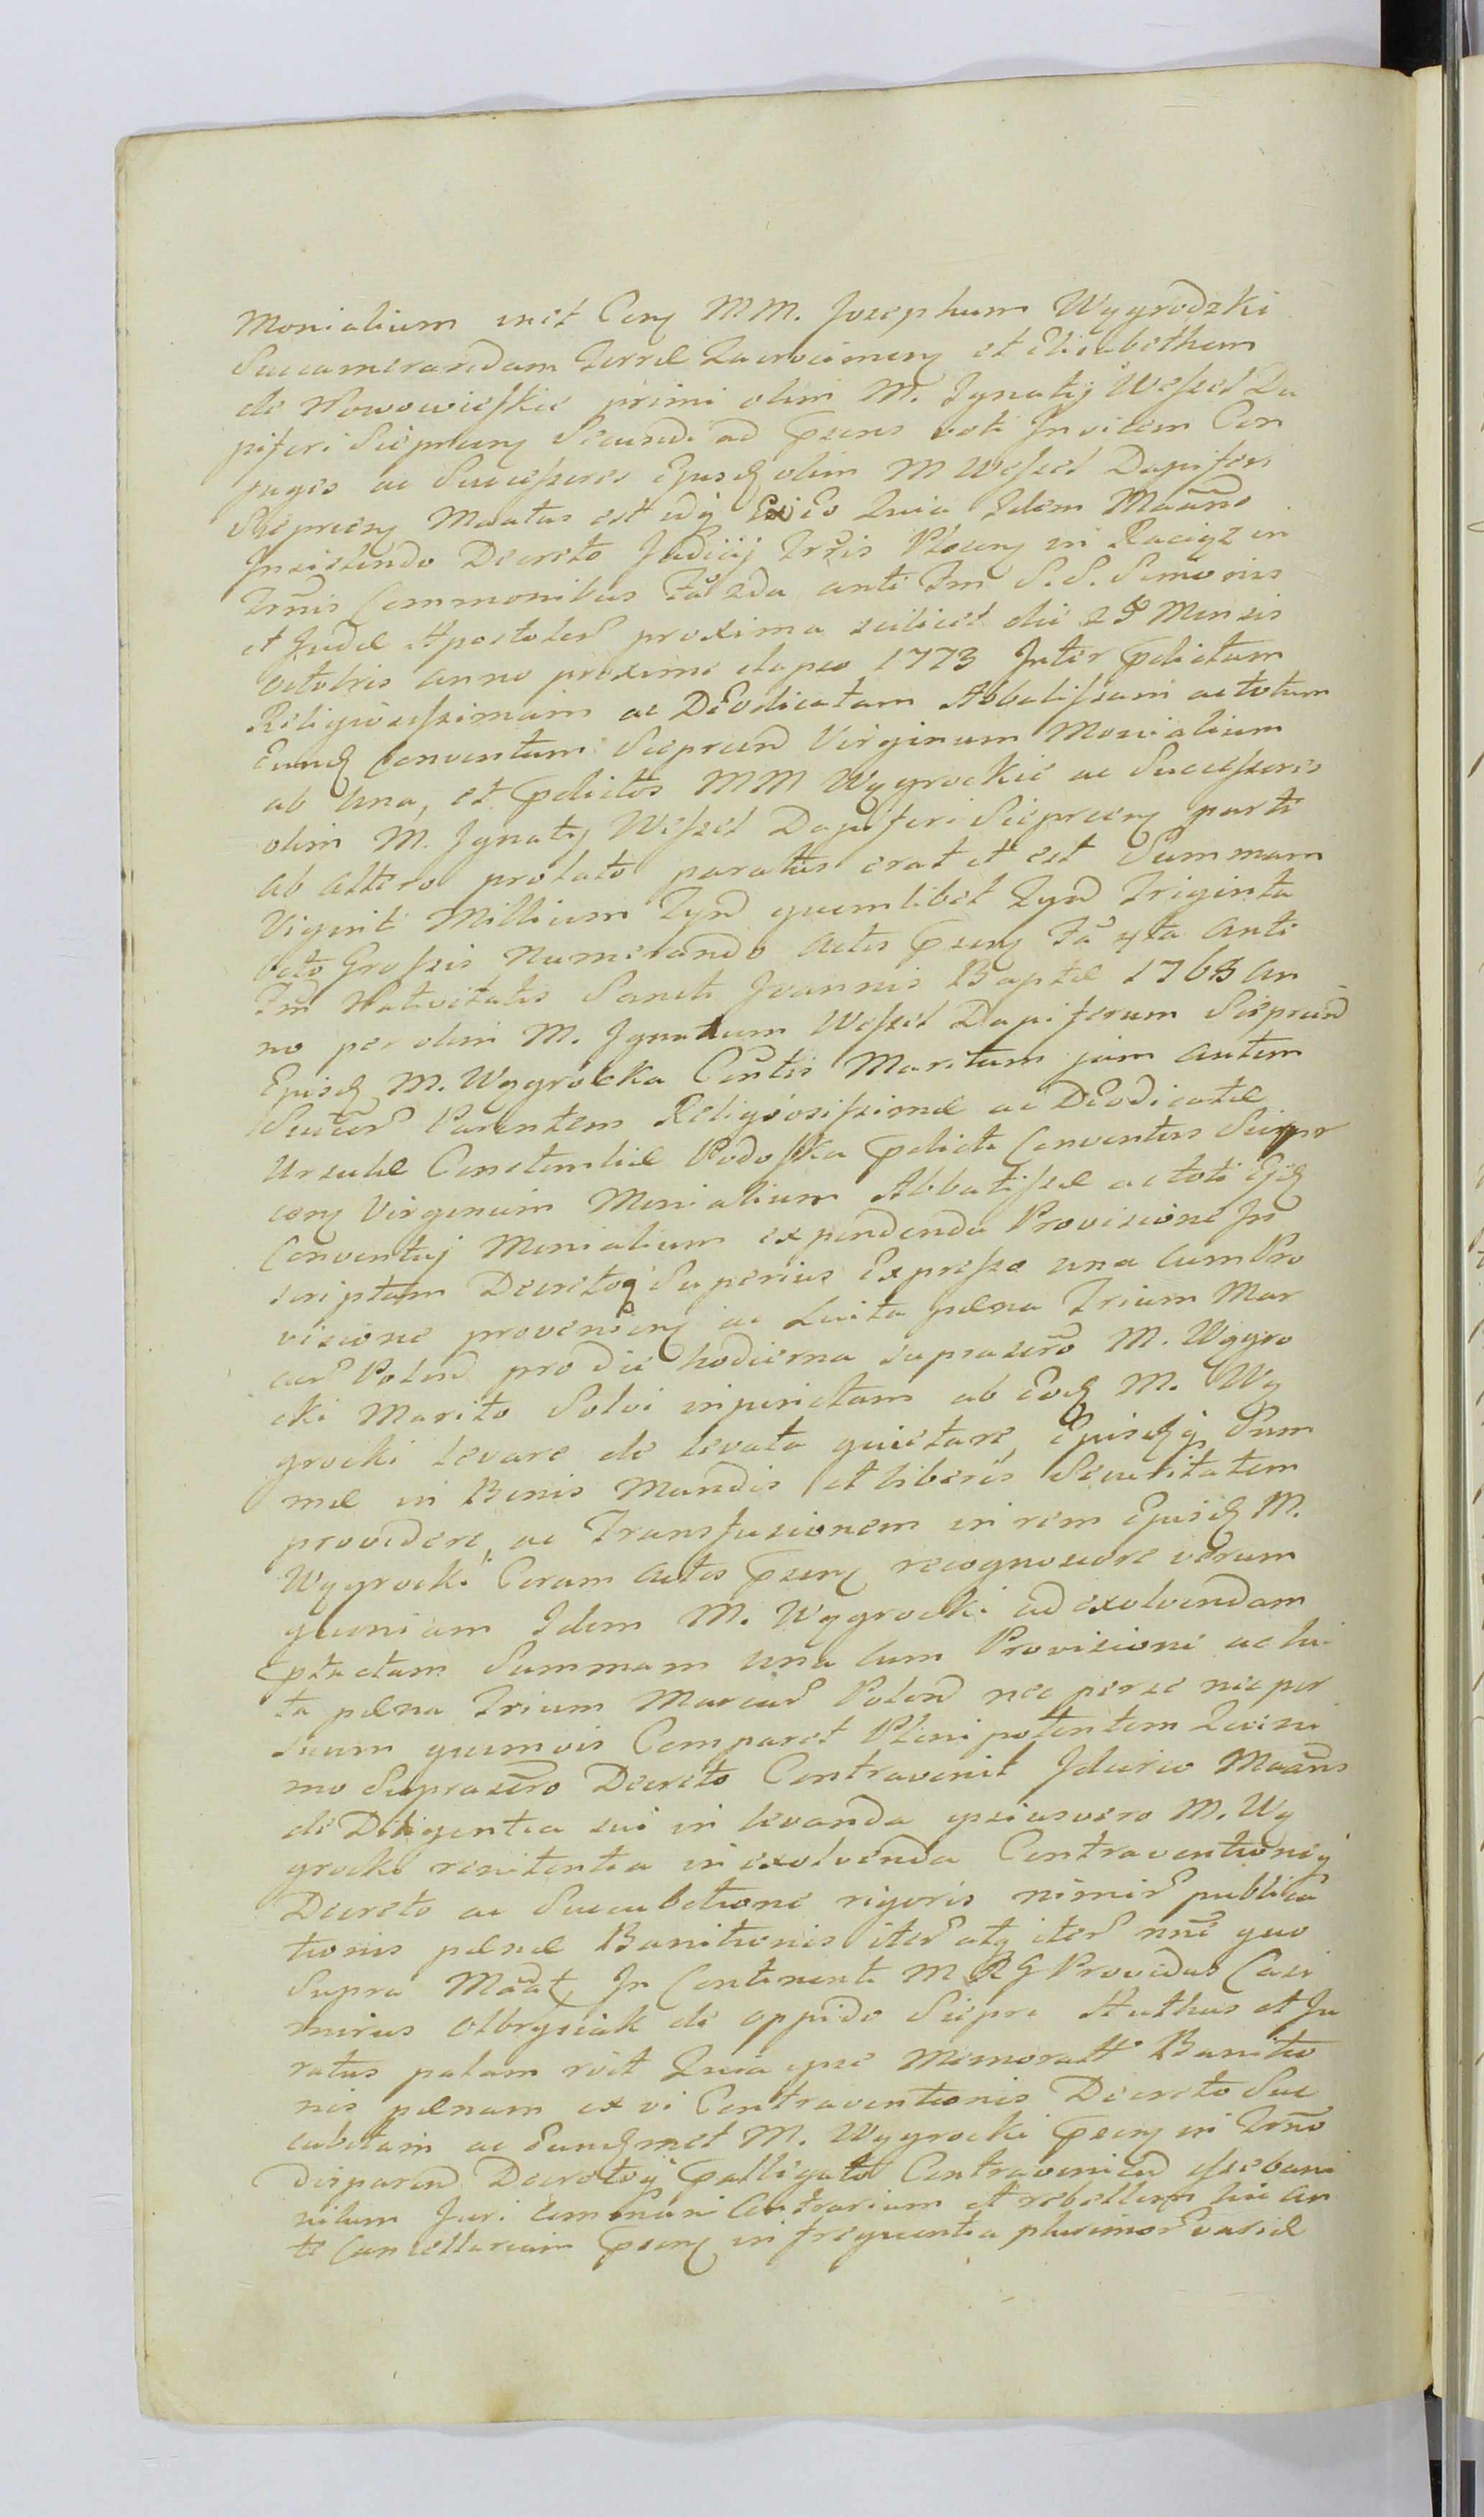 Monialium inct Conj MM. Josephum Wygrodzki
Succamerandam Terræ Zacrocimenș et Elisabetham
de Nowowieſkie primi olim M. Ignatij Weſsel Da
piferi Sieprcenș Secundi ad Pręsens voti Invitem Con
juges ac Succeſsores Ejusd olim M Weſsel Dapiferi
Sieprcenș Maatus est idq Ex Eo Quia Idem Maańs
Insistendo Decreto Judicij Trris Płocenș in Raciąż in
Trmis Commonibus Fa 2da anti Fm S. S. Simonis
et Judæ Apostolor proxima scilicet die 25 Mensis
Octobris anno proxime elapso 1773 Inter Pdictam
Religiosiſsimam ac DEodicatam Abbatiſsam ac totum
Eund Conventum Sieprcen Virginum Monialium
ab una, et Pdictos MM Wygrockie ac Succeſsores
olim M. Ignatij Weſsel Dapiferi Sieprcenș parte
ab altero prolato paratus erat et est Summam
Viginti Millium Tyn quemlibet Tyn Triginta
octo Groſsis Numerando actis Psenș Fa 4ta anti
Fm Nativitatis Sancti Joannis Baptæ 1768 an
no per olim M. Ignatium Weſsel Dapiferum Sieprcen
Ejusd M. Wygrocka Contis Maritum jam autem
Succor Parentem Religiosiſsimæ ac DEodicatæ
Ursulæ Constantiæ Podoſka Pdicti Conventus Sieprc
conș Virginum Monialium Abbatiſsæ ac toti Ejd
Conventuj Monialium expendenda Provisione In
scriptam Decretoq Superius Expreſso una cum Pro
visione provenienș ac Luita pæna Trium Mar
car Polon pro die hodierna suprascro M. Wygro
cki Marito Solvi injunctam ab Eod M. Wy
grocki levare de levata quietare, Ejusdq Sum
mæ in Bonis Mundis et liberis Securitatem
providere, ac Transfusionem in rem Ejusd M.
Wygrocki Coram Actis Psenș recognoscere verum
quoniam Idem M. Wygrocki ad exolvendam
Ptactam Summam una cum Provisioni ac lui
ta pæna Trium Marcar Polon nec per se nec per
suum quemvis Comparet Plenipotentem Quini
mo Suprascro Decreto Contravenit Idcirco Maańs
de Diligentia sui in levanda ipsius vero M. Wy
grocki renitentia in exolvenda Contraventioneq
Decreto ac Succubitione rigoris nimir publica
tionis pænæ Banitionis iter atq iter nne quo
Supra Maat, In Continenti M R G Providus Casi
mirus Olbrysiak de oppido Siepre Authus et Ju
ratus palam rcit Quia ipse Memorattæ Banitio
nis pænam ex vi Contraventionis Decreto Suc
cubitam ac Eundmet M. Wygrocki Psenș in Trno
disparen Decretoq Palligato Contravenien eſse bani
nitum Juri communi Contrarium et rebellem hic an
te Cancellariam Psenș in frequentia plurimor variæ